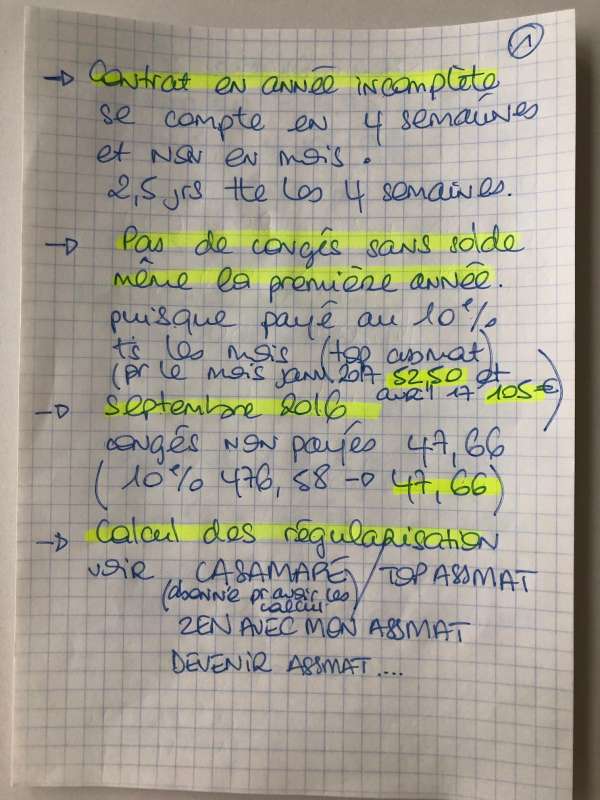 1
→ Contrat en année incomplète
se compte en 4 semaines
et NON en mois.
2,5 jrs tte les 4 semaines.
→ Pas de congés sans solde
même la première année.
puisque payé au 10%
ts les mois (top assmat)
(pr le mois janv 2017 52,50 et
avril 17 105 €)
→ Septembre 2016
congés non payés 47,66
(10% 476,58 → 47,66)
→ Calcul des régularisation
voir CASAMAPE / TOP ASSMAT
(abonnie pr avoir les
calcul
ZEN AVEC MON ASSMAT
DEVENIR ASSMAT....